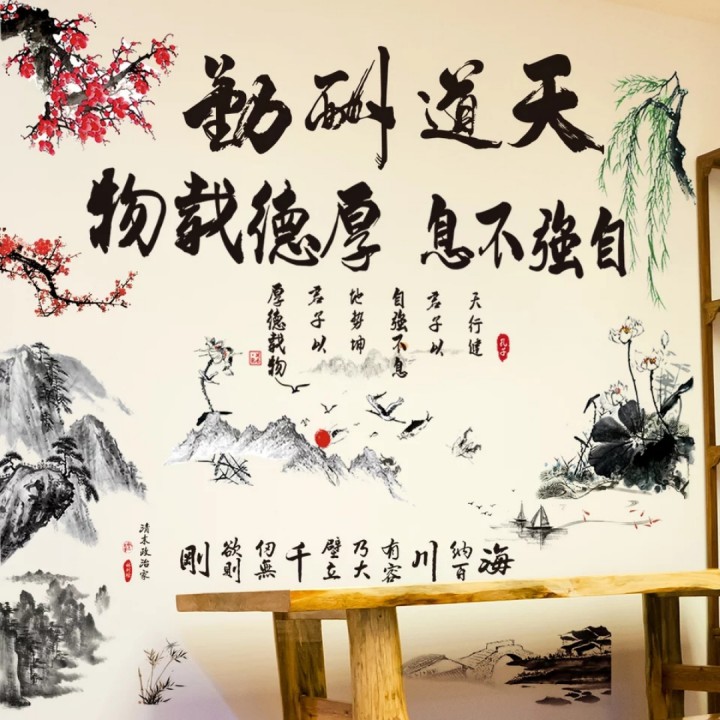 天道酬勤
自強不息 厚德載物
天行健
君子以
自強不息
地勢坤
君子以
厚德載物
孔子
海納百川有容乃大壁立千仞無欲則剛
清末政治家